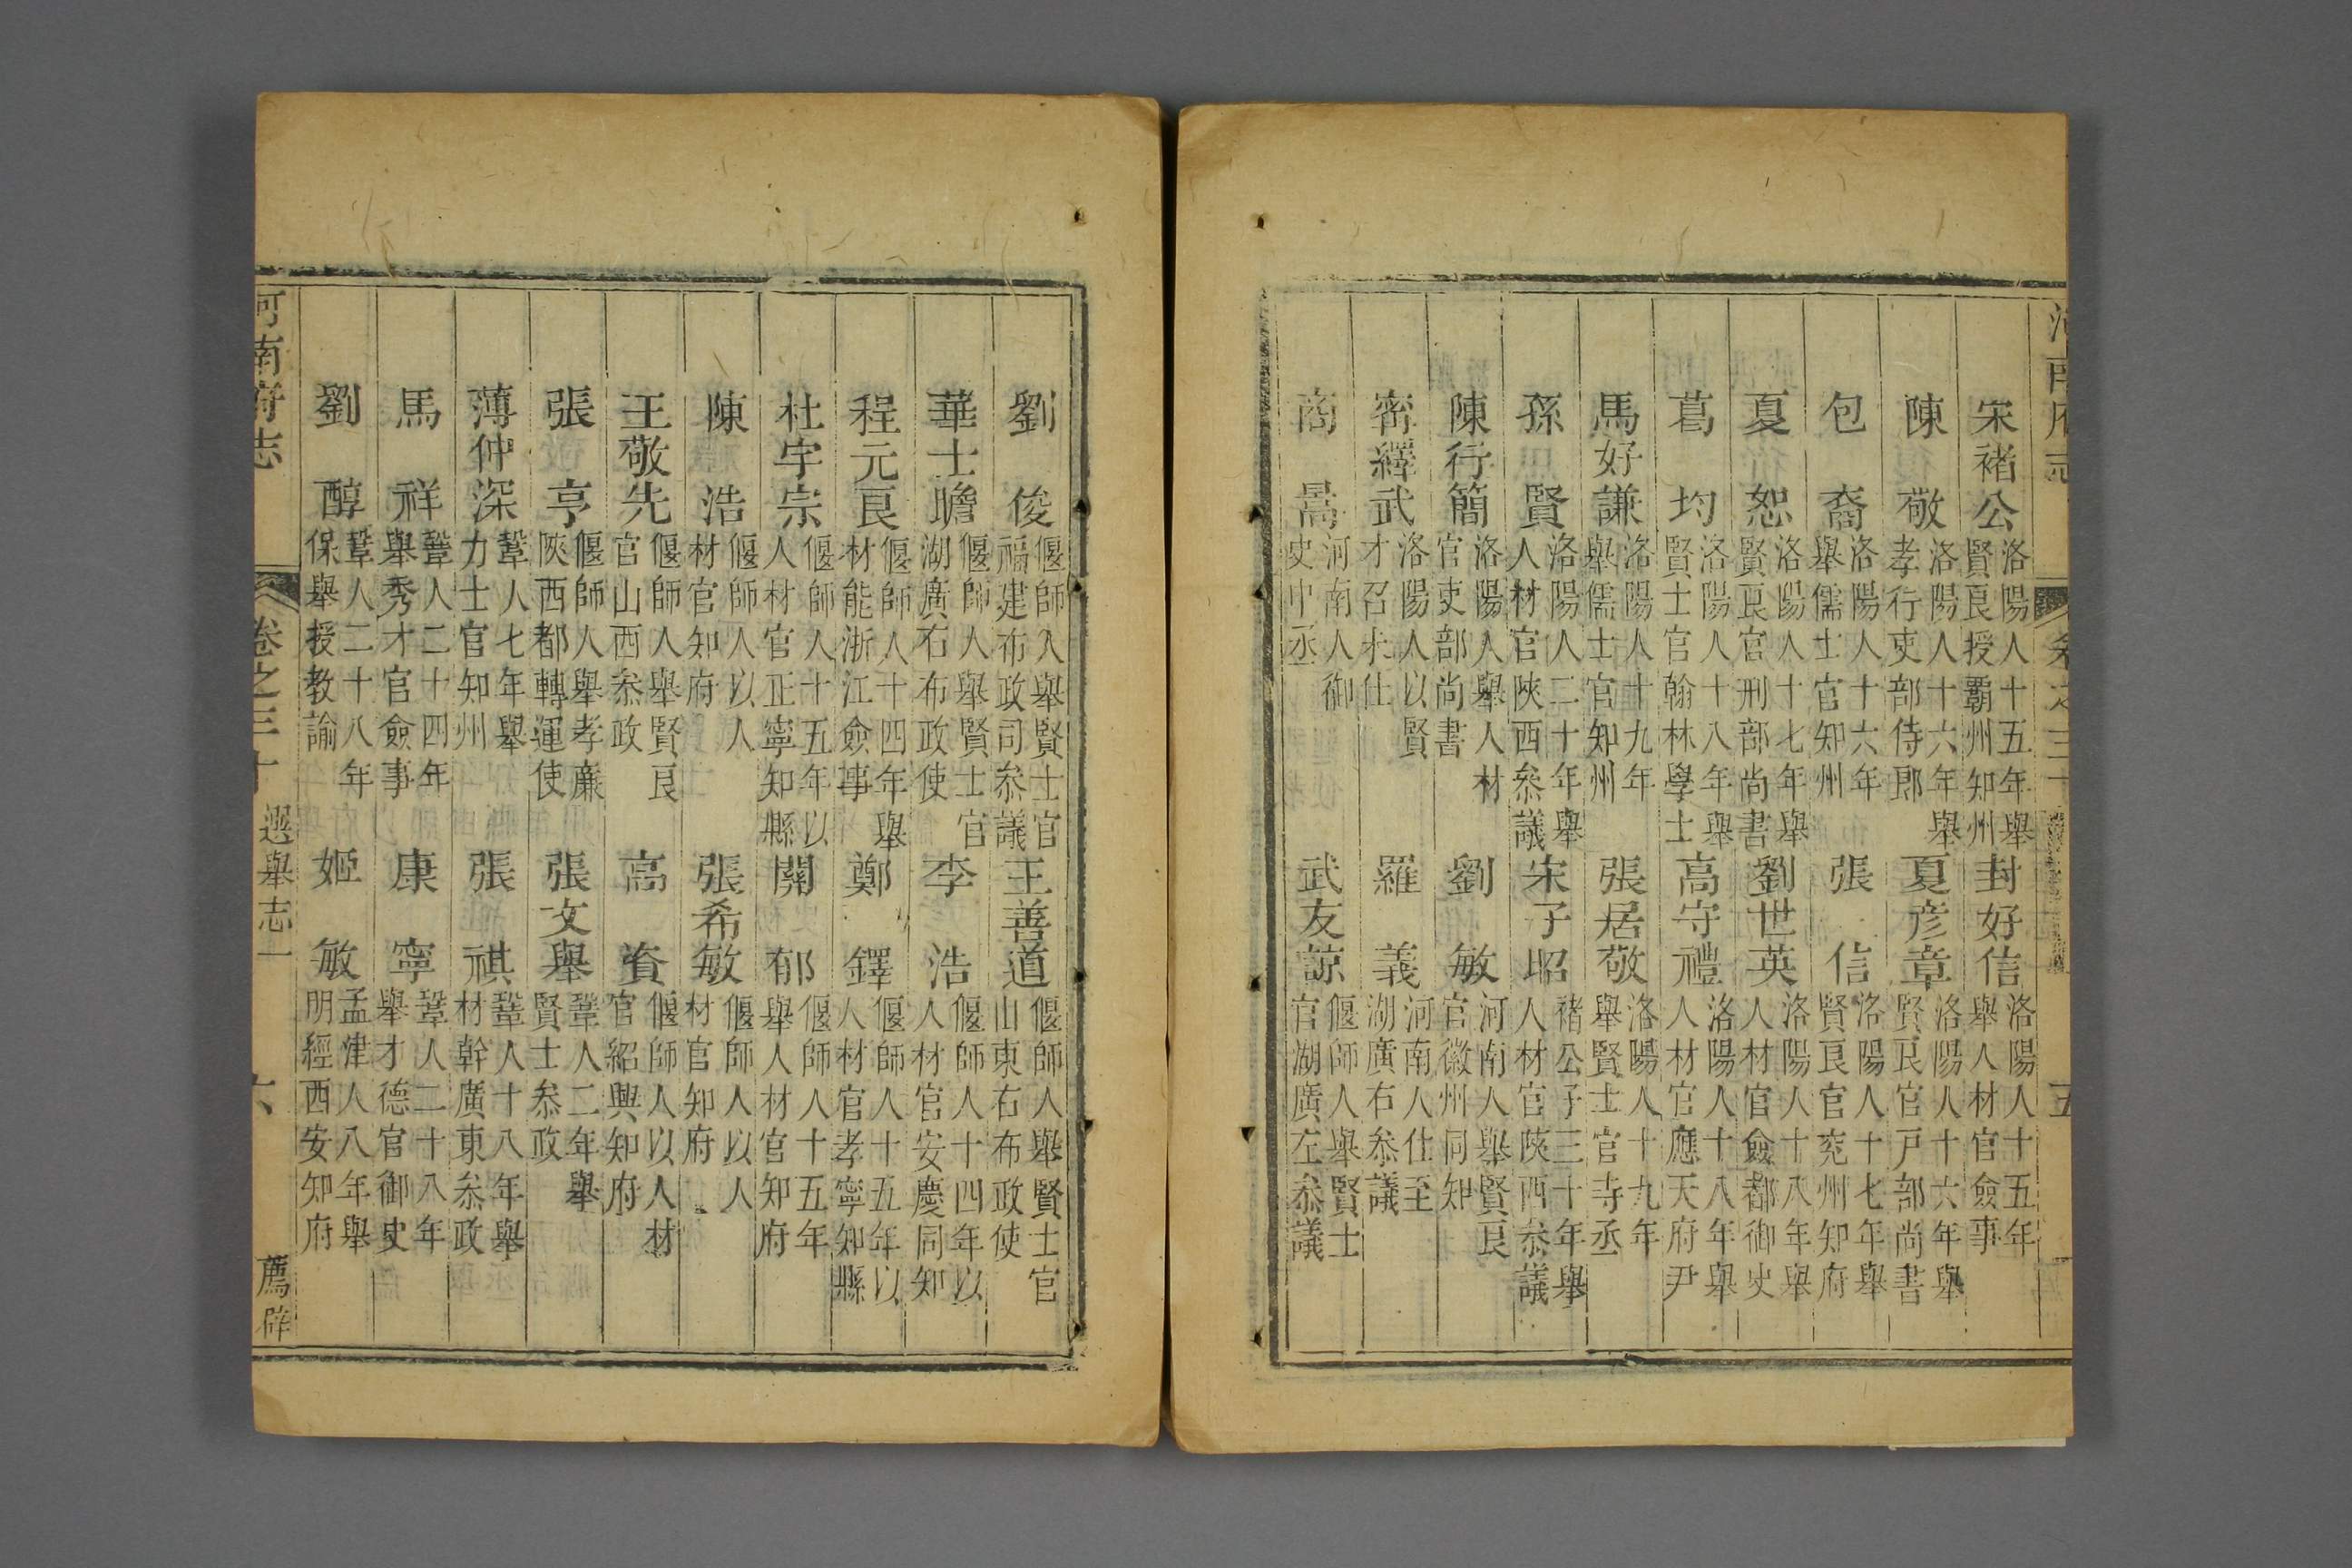 河南府志
卷之三十
五
宋褚公 洛陽人十五年舉賢良授霸州知州 封好信 洛陽人十五年舉人材官僉事
陳敬 洛陽人十六年舉孝行吏部侍郎 夏彥章 洛陽人十六年舉賢良官戸部尚書
包裔 洛陽人十六年舉儒士官知州 張信 洛陽人十七年舉賢良官兖州知府
夏恕 洛陽人十七年舉賢良官刑部尚書 劉世英 洛陽人十八年舉人材官僉都御史
葛均 洛陽人十八年舉賢士官翰林學士 高守禮 洛陽人十八年舉人材官應天府尹
馬好謙 洛陽人十九年舉儒士官知州 張居敬 洛陽人十九年舉賢士官寺丞
孫賢 洛陽人二十年舉人材官陝西叅議 宋子昭 褚公子三十年舉人材官陝西叅議
陳行簡 洛陽人舉人材官吏部尚書 劉敏 河南人舉賢良官徽州同知
宻繹武 洛陽人以賢才召未仕 羅義 河南人仕至湖廣右叅議
商暠 河南人御史中丞 武友諒 偃師人舉賢士官湖廣左叅議
劉俊 偃師人舉賢士官福建布政司叅議 王善道 偃師人舉賢士官山東右布政使
華士瞻 偃師人舉賢士官湖廣右布政使 李浩 偃師人十四年以人材官安慶同知
程元良 偃師人十四年舉材能浙江僉事 鄭鐸 偃師人十五年以人材官孝寧知縣
杜宇宗 偃師人十五年以人材官正寧知縣 關郁 偃師人十五年舉人材官知府
陳浩 偃師人以人材官知府 張希敏 偃師人以人材官知府
王敬先 偃師人舉賢良官山西叅政 高資 偃師人以人材官紹興知府
張亨 偃師人舉孝廉陝西都轉運使 張文舉 鞏人二年舉賢士叅政
薄仲深 鞏人七年舉力士官知州 張祺 鞏人十八年舉材幹廣東叅政
馬祥 鞏人二十四年舉秀才官僉事 康寧 鞏人二十八年舉才德官御史
劉醇 鞏人二十八年保舉授教諭 姬敏 孟津人八年舉明經西安知府
河南府志
卷之三十
選舉志一
六
薦辟